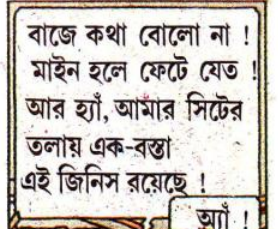 বাজে কথা বোলো না !
মাইন হলে ফেটে যেত !
আর হ্যাঁ, আমার সিটের
তলায় এক-বস্তা
এই জিনিস রয়েছে !
অ্যাঁ !